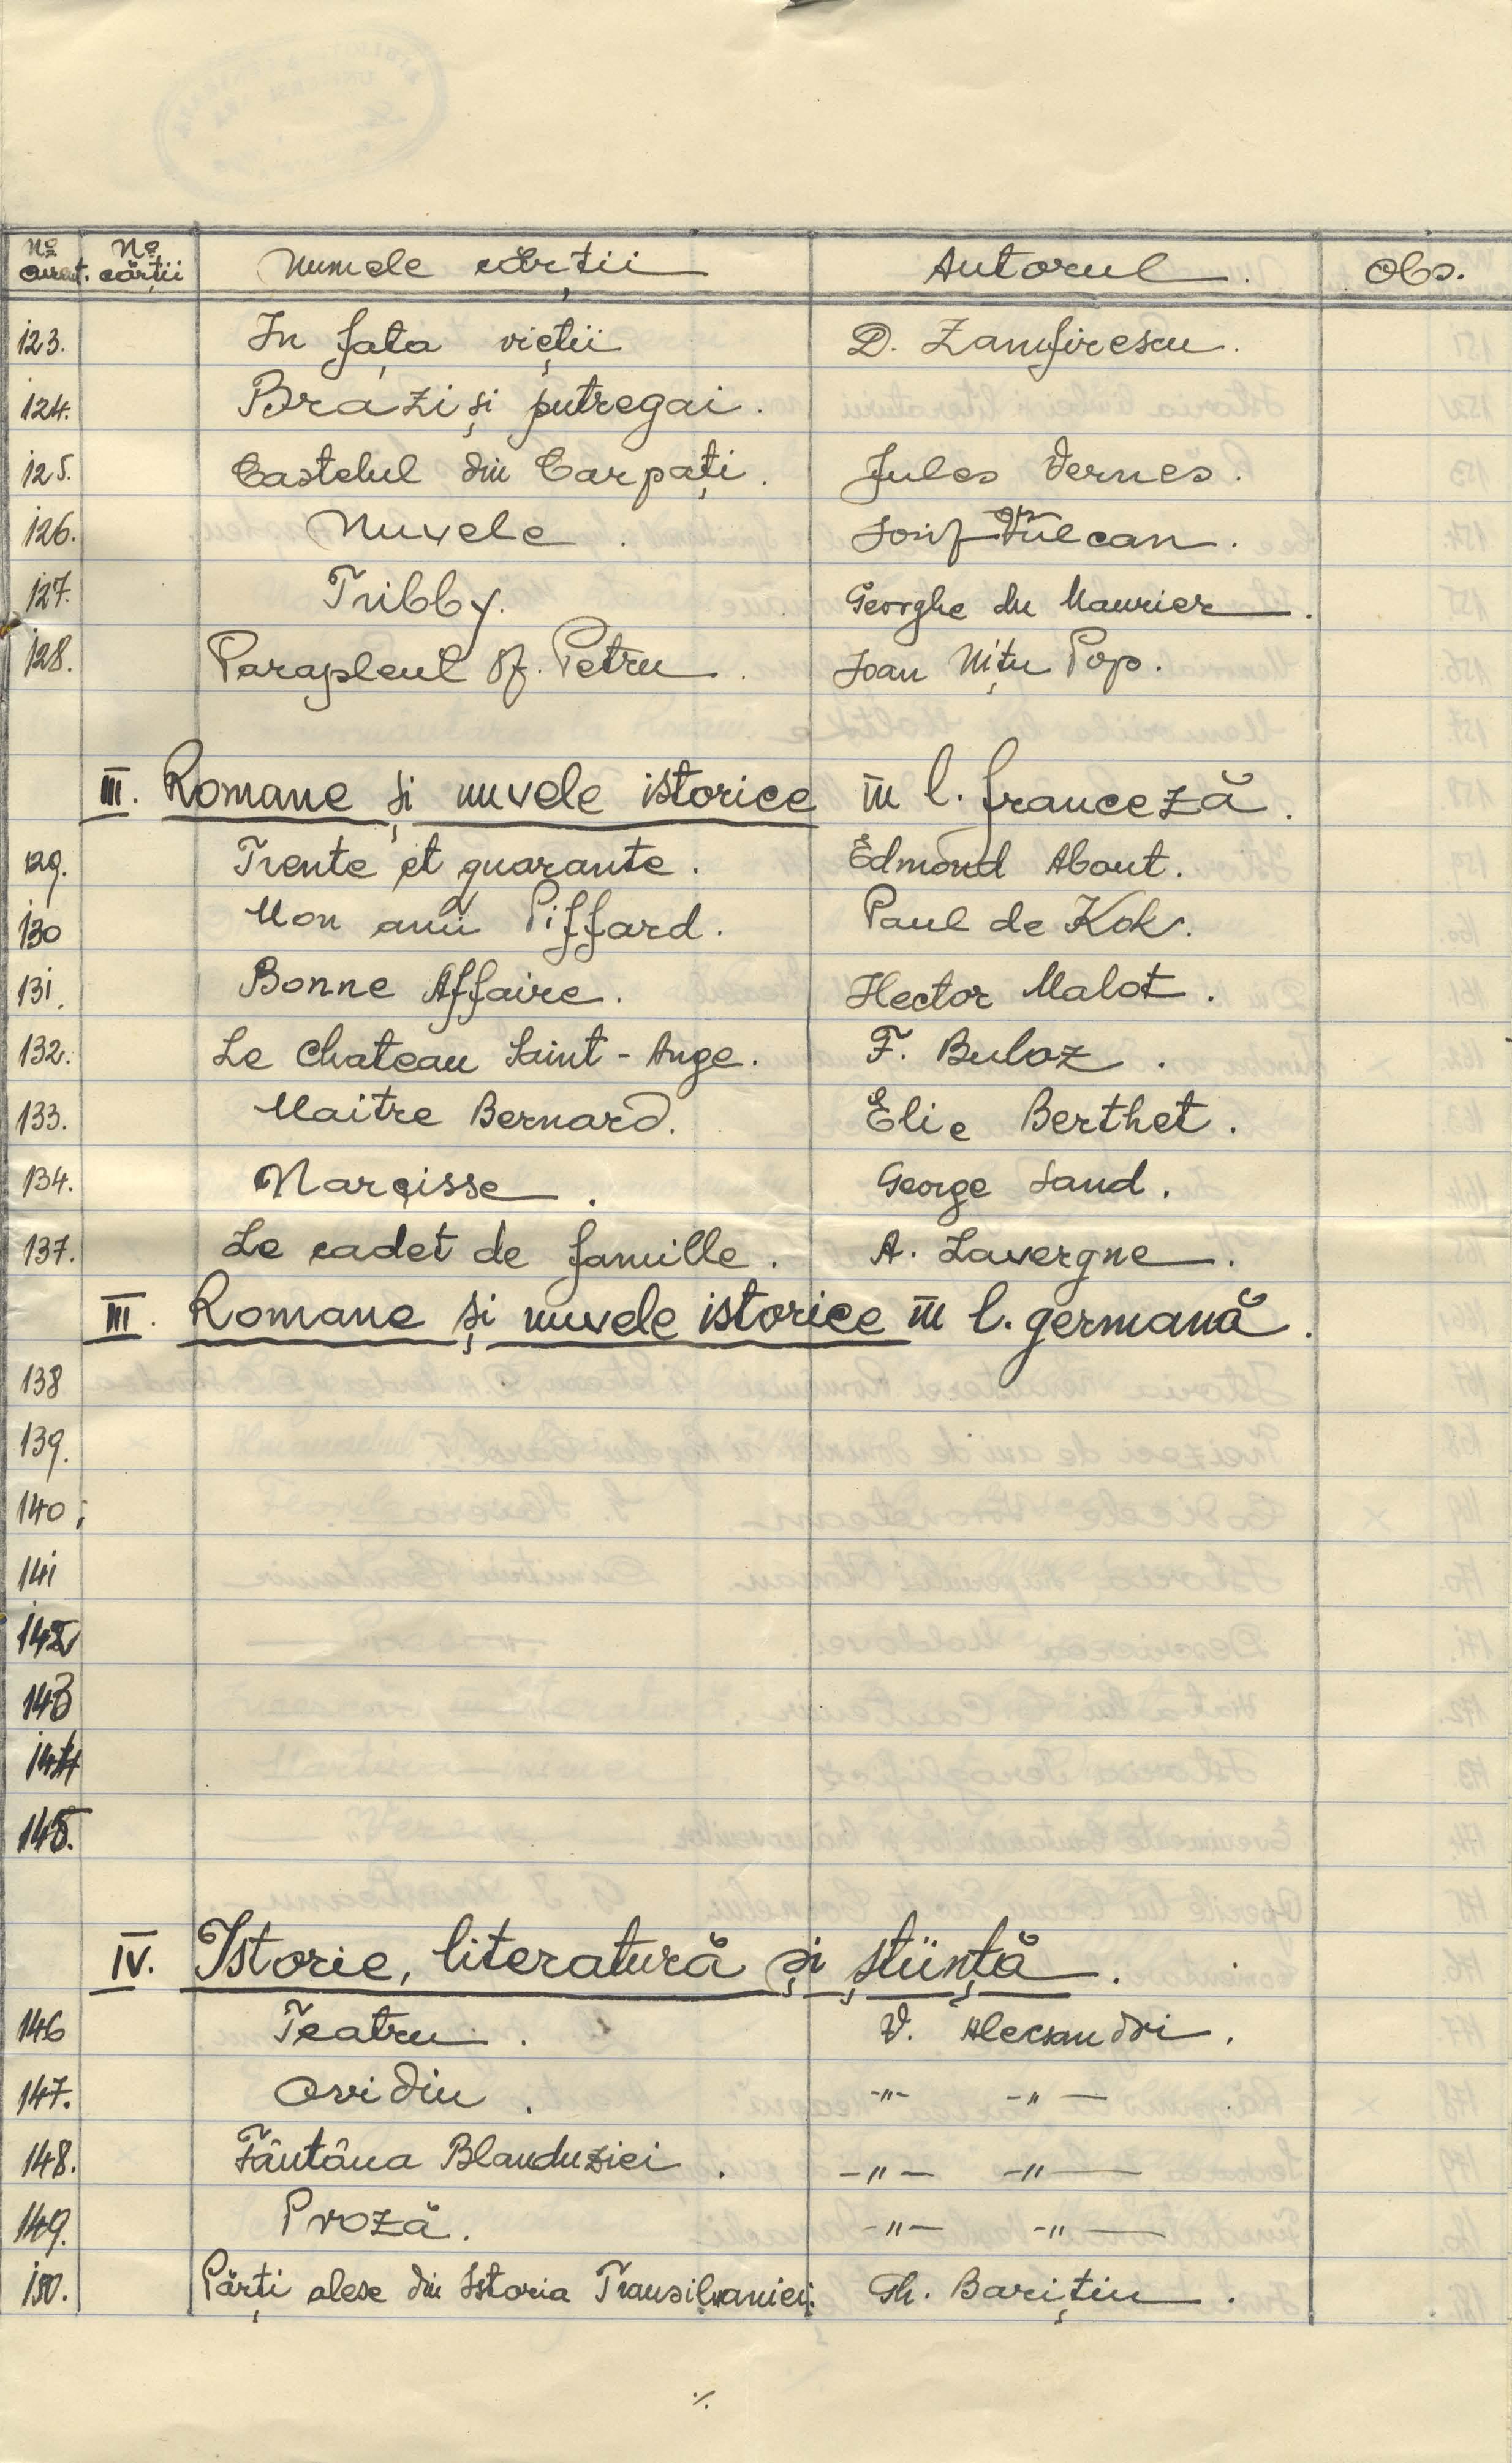 No curent. No cărții Numele cărții Autorul. Obs.
123. In fața vieții D. Zamfirescu.
124. Brazi și putregai.
125. Castelul din Carpați. Jules Vernes.
126. Nuvele. Iosif Vulcan.
127. Tribby. Georghe du Maurier.
128. Parapleul Sf. Petru. Ioan Nițu Pop.
III. Romane și nuvele istorice în l. franceză.
129. Trente et quarante. Edmond About.
130 Mon ami Piffard. Paul de Kok.
131. Bonne Affaire. Hector Malot.
132. Le Chateau Saint-Ange. F. Buloz.
133. Maitre Bernard. Elie Berthet.
134. Narcisse. George Sand.
137. Le cadet de famille. A. Lavergne.
III. Romane și nuvele istorice în l. germană.
138
139.
140.
141
142
143
144
145.
IV. Istorie, literatură și știință.
146 Teatru. V. Alecsandri.
147. Ovidiu. -"- -"-
148. Fântâna Blanduziei. -"- -"-
149. Proză. -"- -"-
150. Părți alese din Istoria Transilvaniei. Gh. Barițiu.
./.